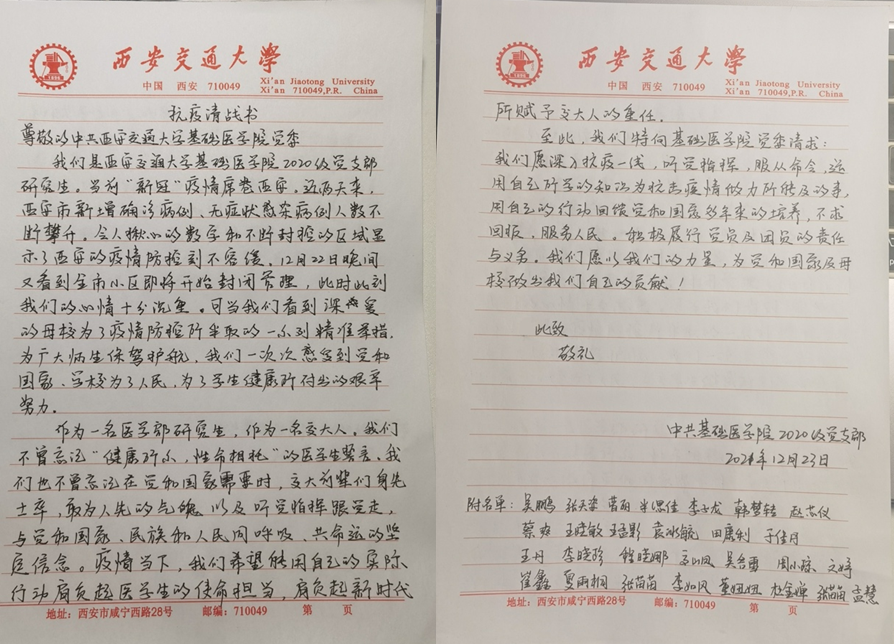 西安交通大学
中国 西安 710049 Xi'an Jiaotong University
Xi'an 710049,P.R. China
抗疫请战书
尊敬的中共西安交通大学基础医学院党委
我们是西安交通大学基础医学院2020级党支部
研究生。当前“新冠”疫情席卷西安。近两天来,
西安市新增确诊病例、无症状感染病例人数不
断攀升。令人揪心的数字和不断封控的区域显
示了西安的疫情防控刻不容缓。12月22日晚间
又看到全市小区即将开始封闭管理,此时此刻
我们的心情十分沉重。可当我们看到深爱
的母校为了疫情防控所采取的一系列精准举措。
为广大师生保驾护航,我们一次次感受到党和
国家、学校为了人民,为了学生健康所付出的艰辛
努力.
作为一名医学部研究生,作为一名交大人。我们
不曾忘记“健康所系,性命相托”的医学生誓言,我
们也不曾忘记在党和国家需要时,交大前辈们身先
士卒,敢为人先的气魄 以及听党指挥跟党走,
与党和国家、民族和人民同呼吸、共命运的坚
定信念。疫情当下,我们希望能用自己的实际
行动肩负起医学生的使命担当,肩负起新时代
地址:西安市咸宁西路28号 邮编:710049 第 页
西安交通大学
中国 西安 710049 Xi'an Jiaotong University
Xi'an 710049,P.R. China
所赋予交大人的重任.
至此,我们特向基础医学院党委请求:
我们愿深入抗疫一线,听党指挥,服从命令,运
用自己所学的知识为抗击疫情做力所能及的事,
用自己的行动回馈党和国家多年来的培养,不求
回报、服务人民。积极履行党员及团员的责任
与义务。我们愿以我们的力量,为党和国家及母
校做出我们自己的贡献!
此致
敬礼
中共基础医学院2020级党支部
2021年12月23日
附名单:吴鹏 李子龙 韩梦转 赵志仪
蔡爽 王晓敏 王孟影 袁冰航 田康利 于佳丹
王丹 李晓珍 程晓娜 吴台勇 周小琼 文婷
崔鑫 夏雨桐 张苗苗 李如风 董妞妞 杜金婵 张苗苗 孟慧
地址:西安市咸宁西路28号 邮编:710049 第 页